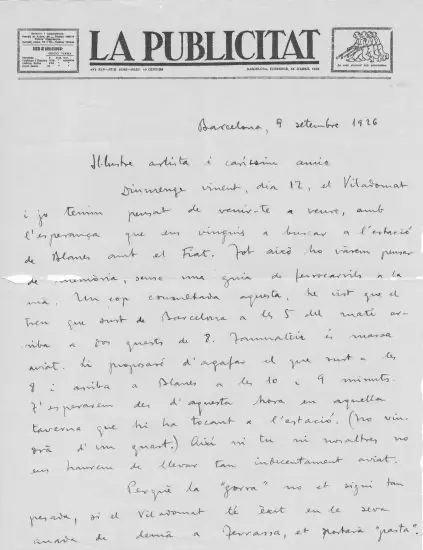 LA PUBLICITAT
Barcelona, 9 setembre 1926
Il·lustre artista i caríssim amic
Diumenge vinent, dia 12, el Viladomat
i jo tenim pensat de venir-te a veure, amb
l'esperança que ens vinguis a buscar a l'estació
de Blanes amb el Fiat. Tot això ho vàrem pensar
de memòria, sense una guia de ferrocarrils a la
mà. Un cop consultada aquesta, he vist que el
tren que surt de Barcelona a les 5 del matí ar-
riba a dos quarts de 8. Francament és massa
aviat. Li proposaré d'agafar el que surt a les
8 i arriba a Blanes a les 10 i 9 minuts.
T'esperarem des d'aquesta hora en aquella
taverna que hi ha tocant a l'estació. (No vin-
drà d'un quart.) Així ni tu ni nosaltres no
ens haurem de llevar tan indecentment aviat.
Perquè la "gorra" no et sigui tan
pesada, si el Viladomat té èxit en la seva
anada de demà a Terrassa, et portarà "pasta".